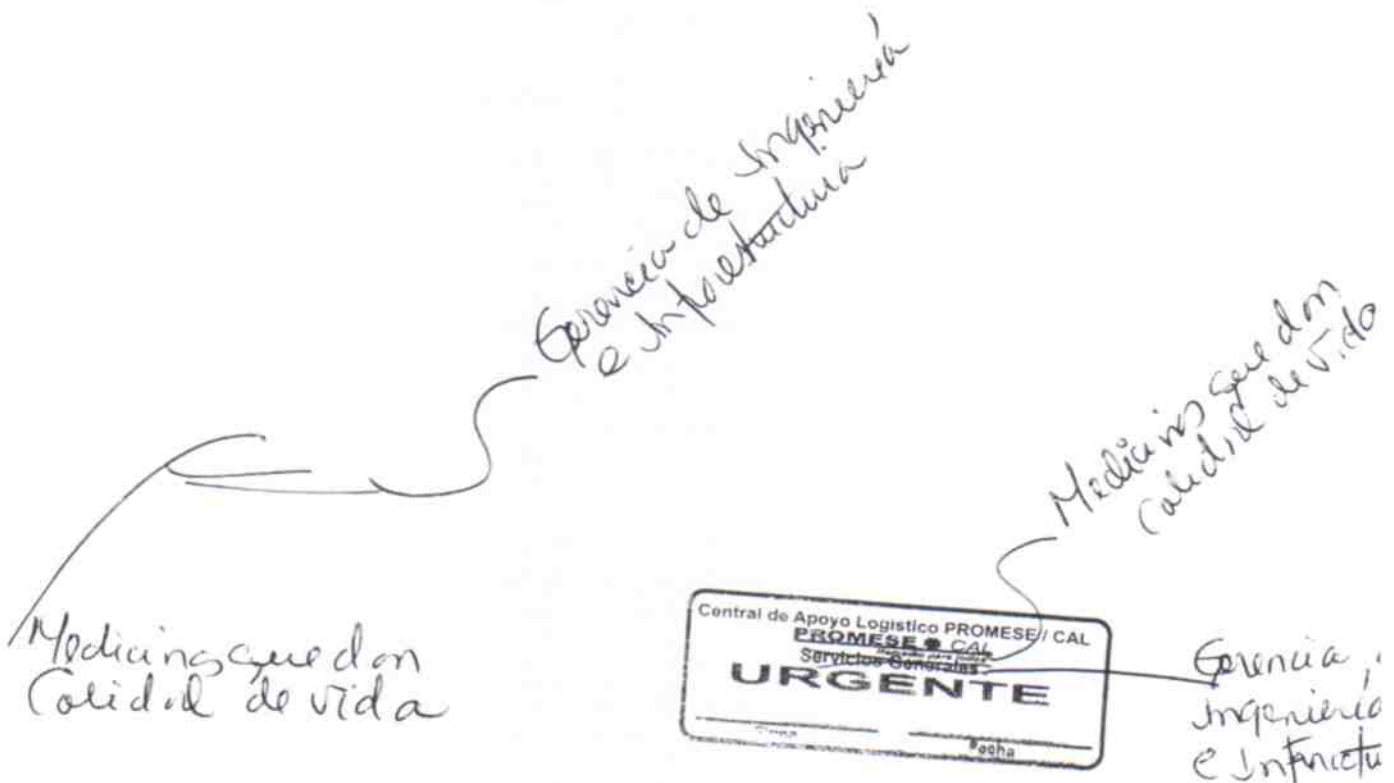 Gerencia de Ingeniería
e Infraestructura
Medicinas que dan
Calidad de vida
Medicinas que dan
Calidad de vida
Central de Apoyo Logístico PROMESE / CAL
PROMESE CAL
Servicios Generales
URGENTE
Firma Fecha
Gerencia
Ingeniería
e